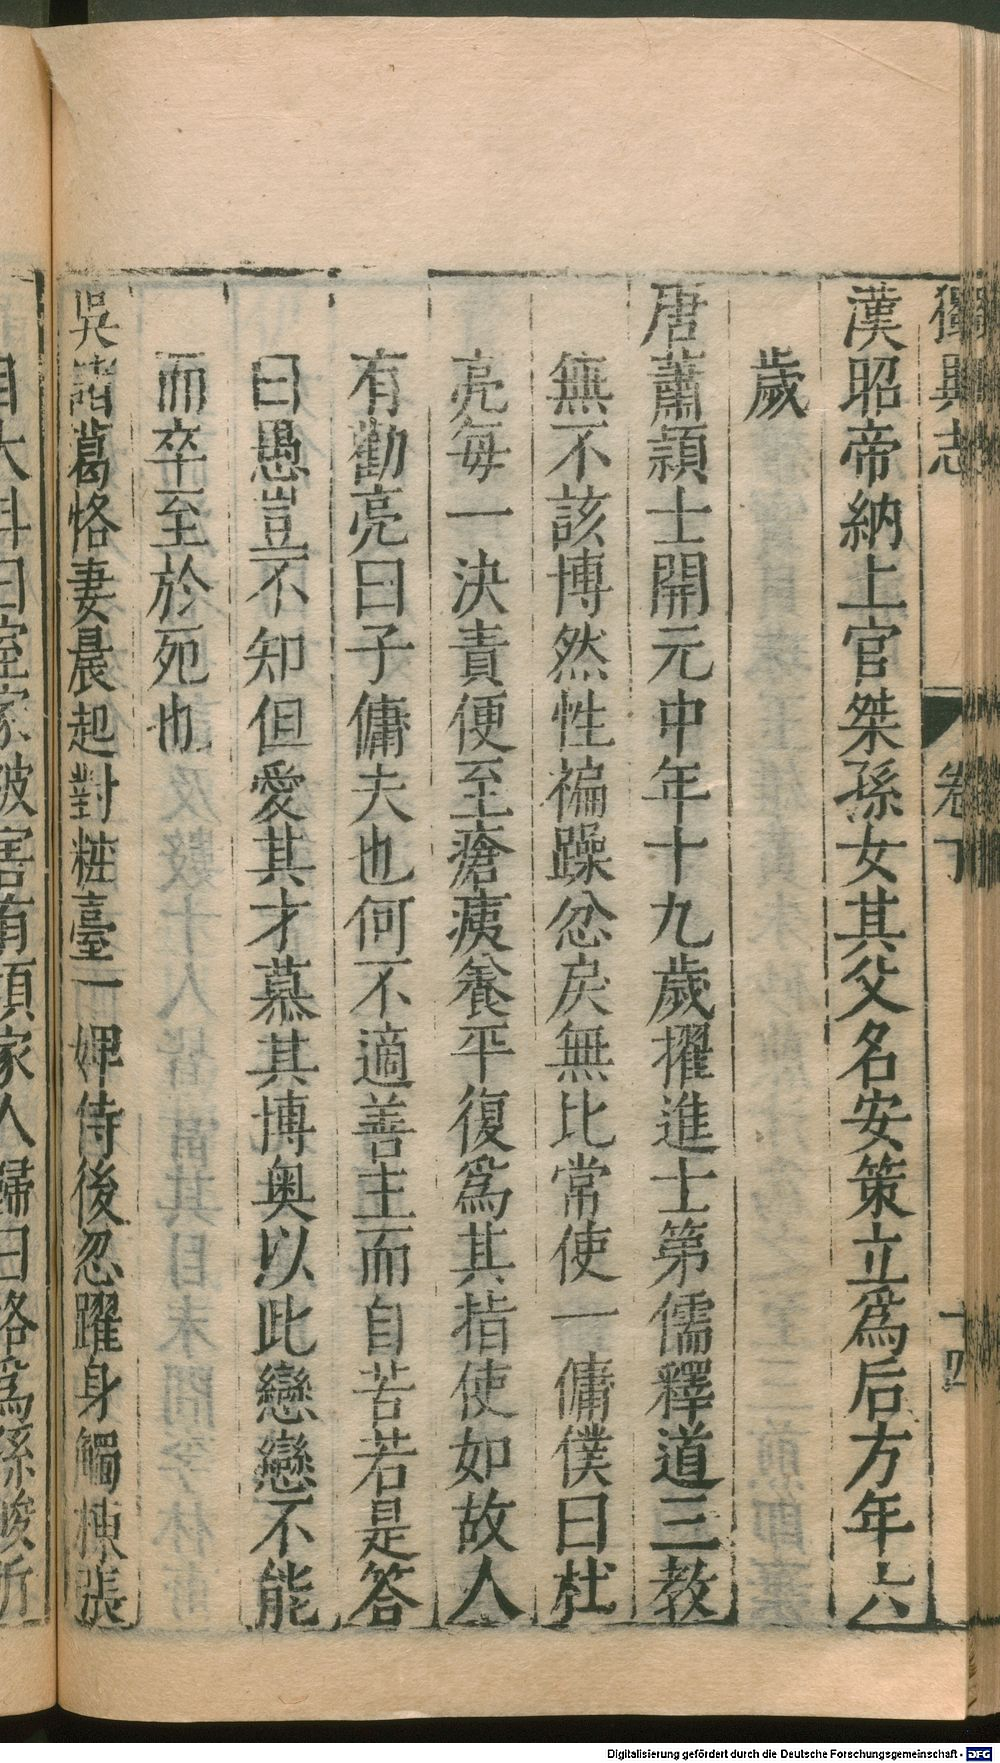 獨異志 卷下 十四
漢昭帝納上官桀孫女其父名安策立爲后方年六
歲
唐蕭頴士開元中年十九歲擢進士第儒釋道三教
無不該博然性褊躁忿戾無比常使一傭僕曰杜
亮每一決責便至瘡痍養平復爲其指使如故人
有勸亮曰子傭夫也何不適善主而自苦若是答
曰愚豈不知但愛其才慕其博奥以此戀戀不能
而卒至於死也
吳諸葛恪妻晨起對粧臺一婢侍後忽躍身觸棟張
目大叫曰室家破害有頃家人歸曰恪爲孫峻所
Digitalisierung gefördert durch die Deutsche Forschungsgemeinschaft - DFG